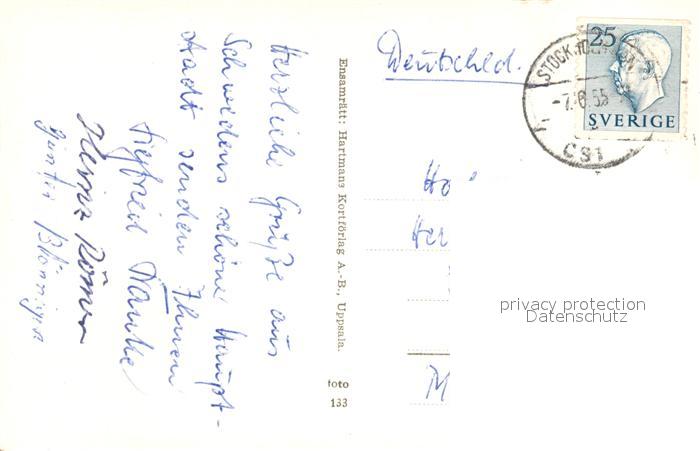 Herzliche Grüße aus
Schwedens schöne Haupt-
stadt senden Ihnen
Siegfried
Heinz Römer
Günter
Ensamrätt: Hartmans Kortförlag A.-B., Uppsala.
foto
133
Deutschld.
25
SVERIGE
STOCKHOLM
-7.6.55
CS1
Ho
Her
M
privacy protection
Datenschutz